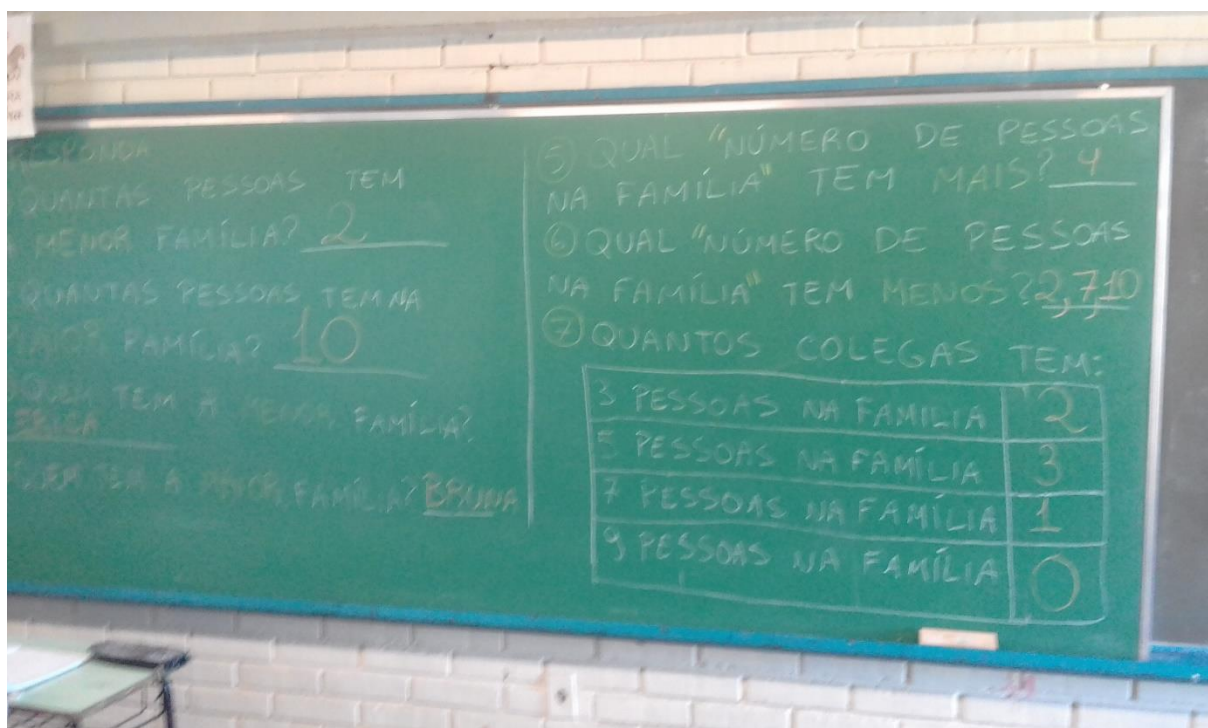 RESPONDA
QUANTAS PESSOAS TEM
MENOR FAMÍLIA? 2
QUANTAS PESSOAS TEM NA
MAIOR FAMÍLIA? 10
QUEM TEM A MENOR FAMÍLIA?
QUEM TEM A MAIOR FAMÍLIA? BRUNA
5 QUAL "NÚMERO DE PESSOAS
NA FAMÍLIA" TEM MAIS? 4
6 QUAL "NÚMERO DE PESSOAS
NA FAMÍLIA" TEM MENOS? 2,7,10
7 QUANTOS COLEGAS TEM:
3 PESSOAS NA FAMILIA 2
5 PESSOAS NA FAMÍLIA 3
7 PESSOAS NA FAMÍLIA 1
9 PESSOAS NA FAMÍLIA 0